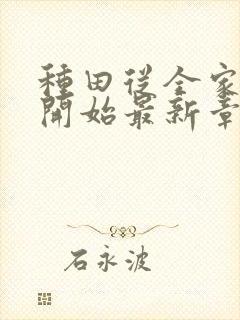 種田從全家
開始最新章
石永波